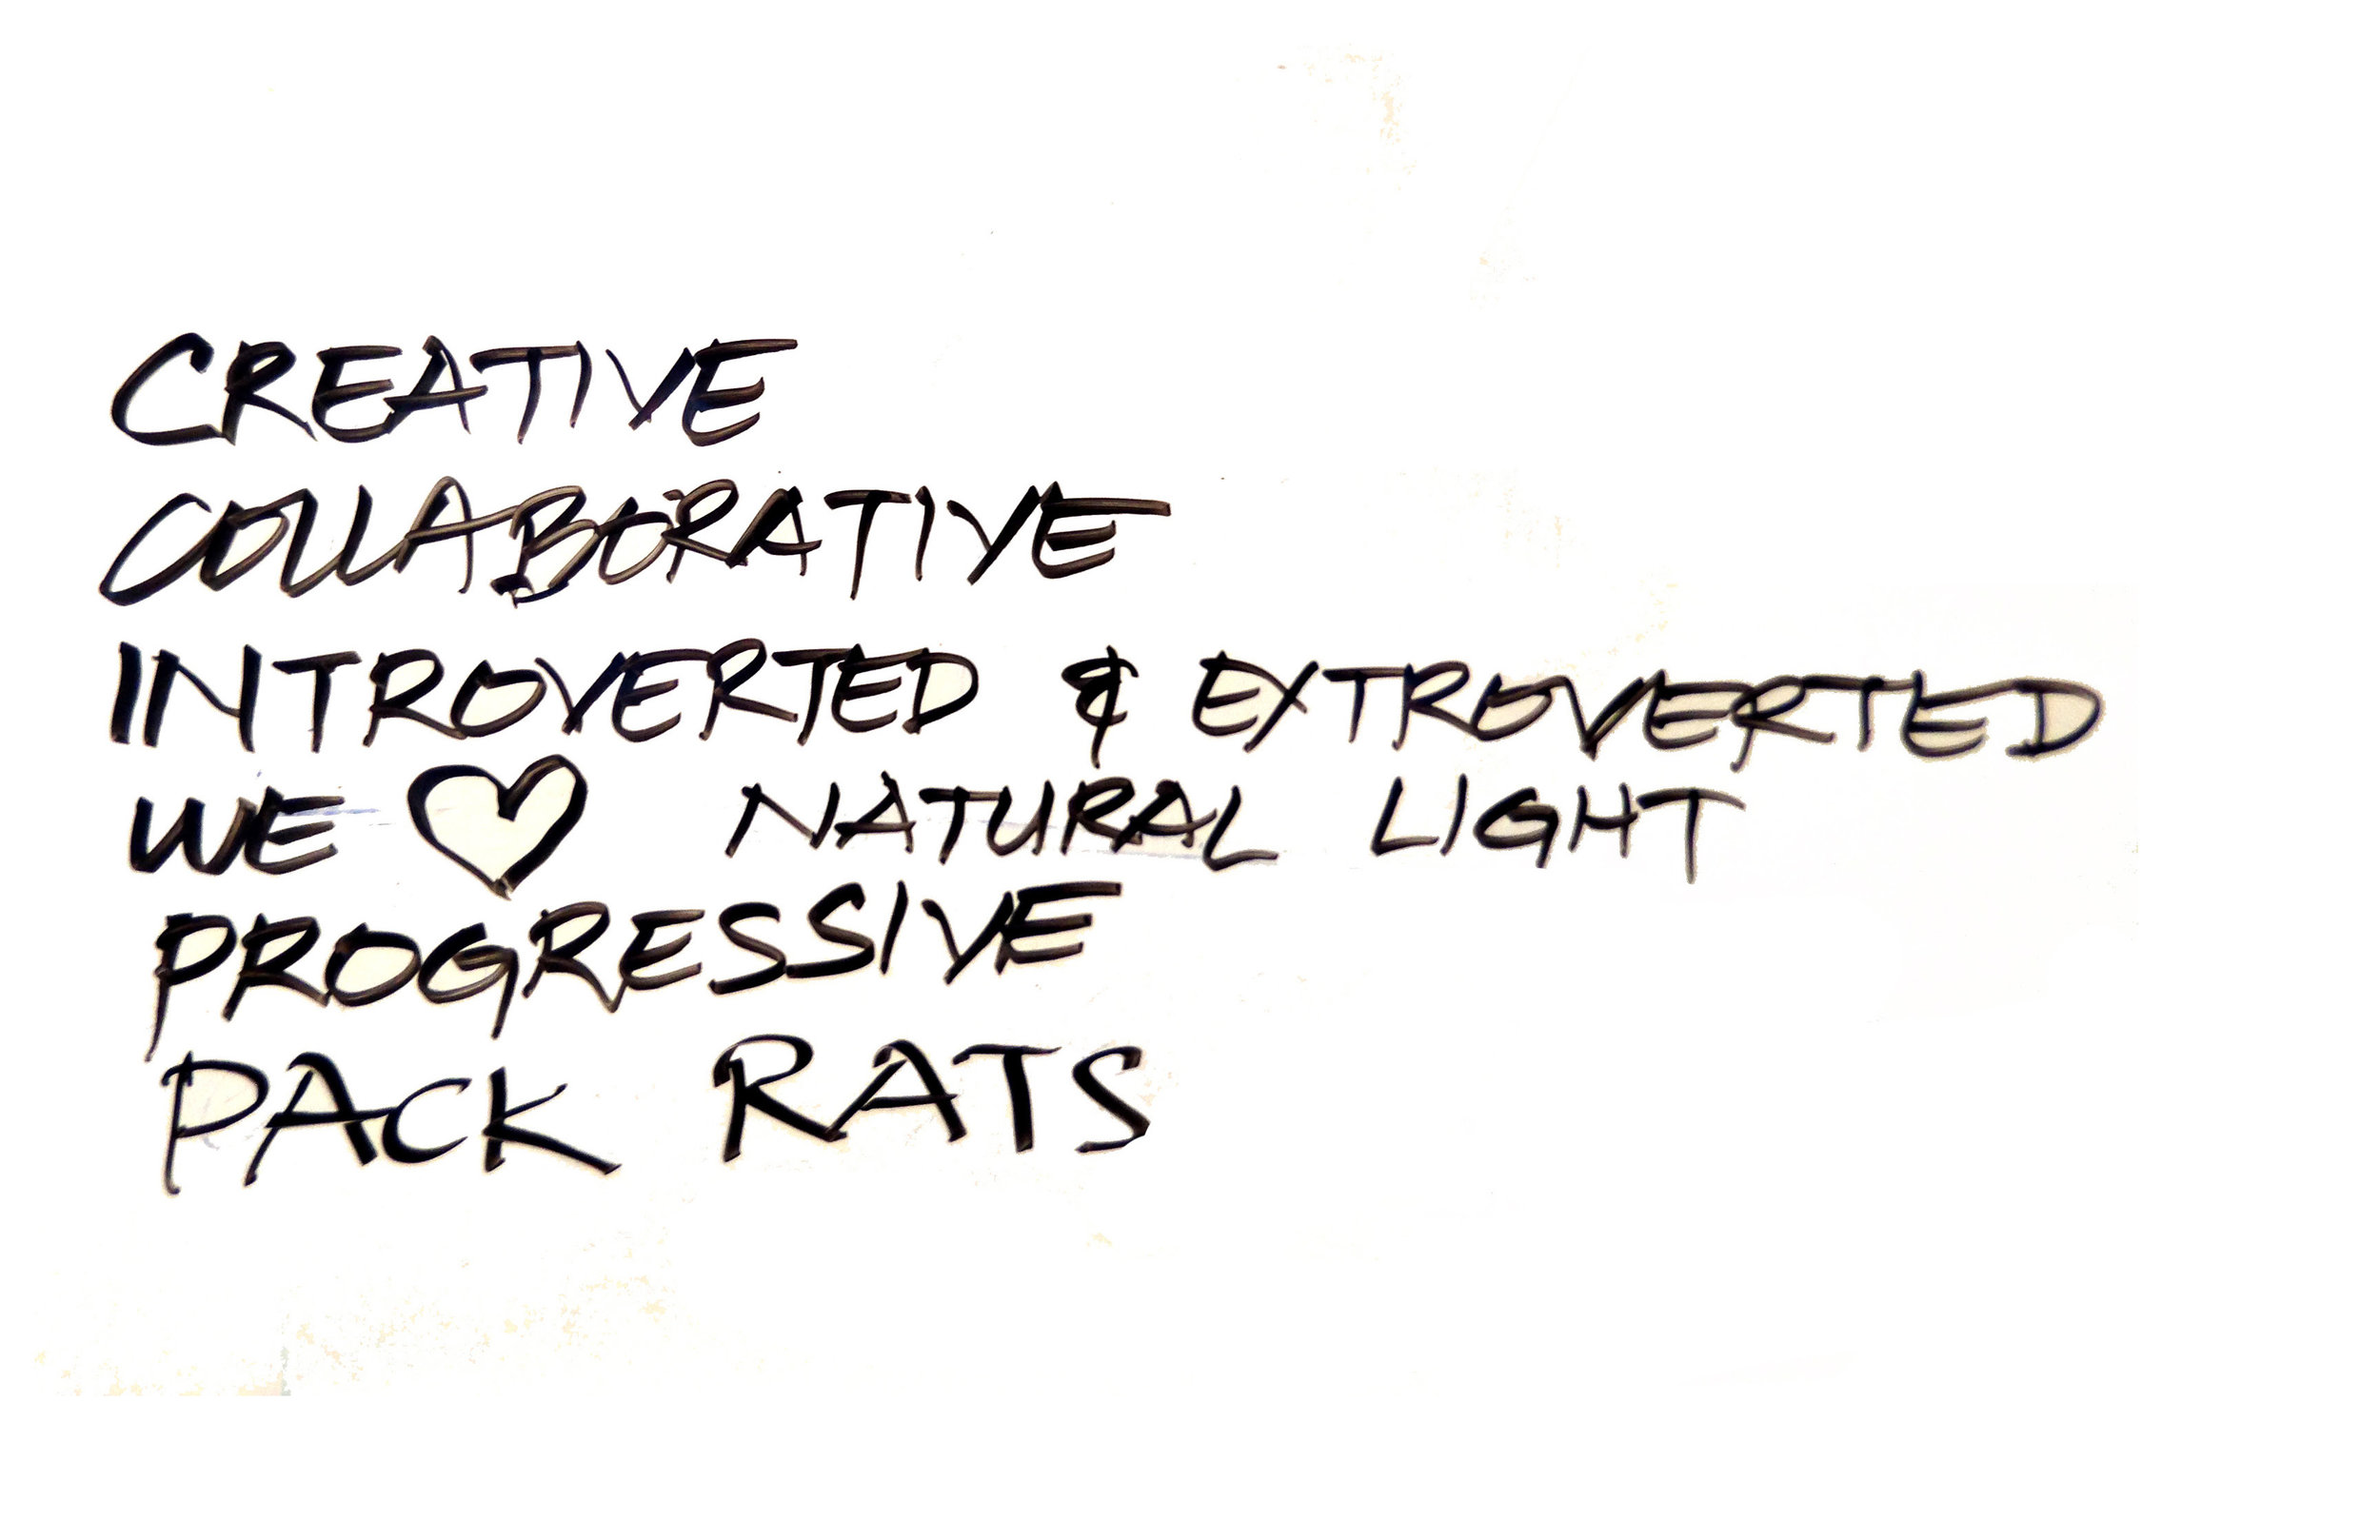 CREATIVE
COLLABORATIVE
INTROVERTED & EXTROVERTED
WE ♡ NATURAL LIGHT
PROGRESSIVE
PACK RATS